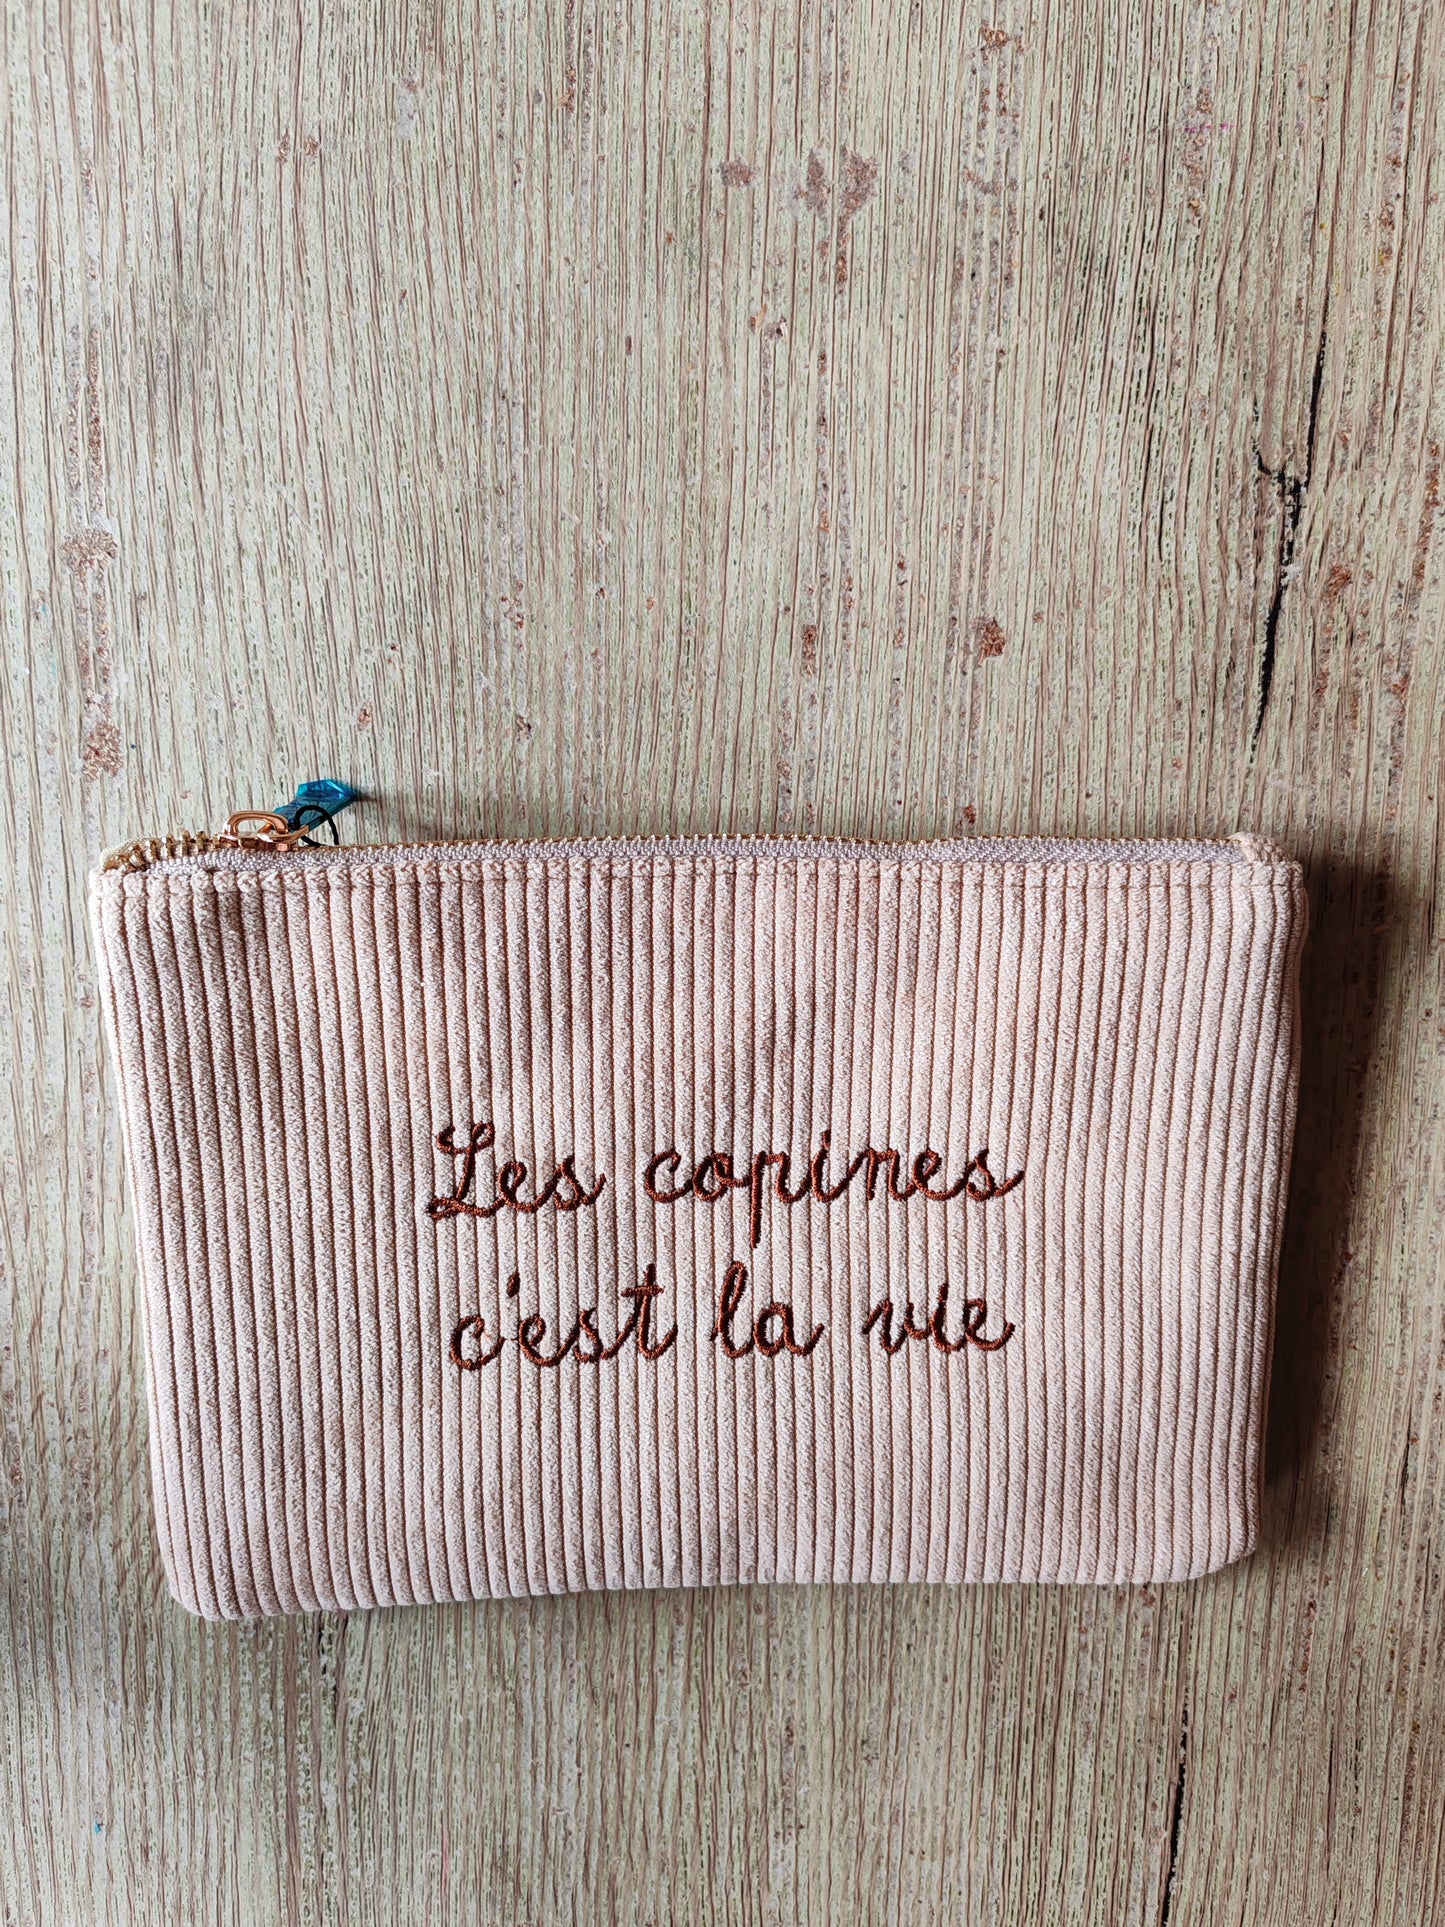 Les copines
c'est la vie